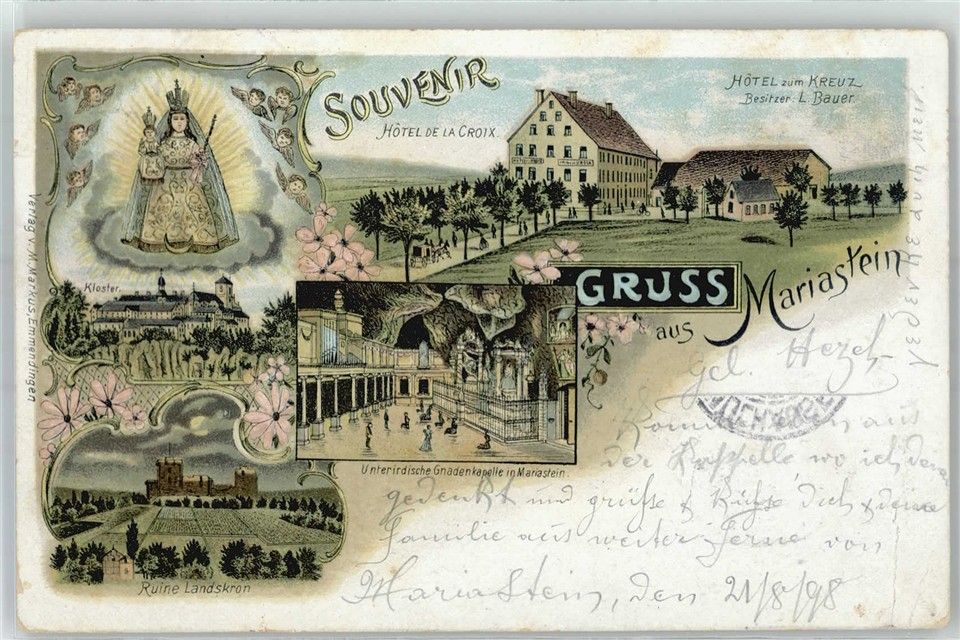 SOUVENIR
HÔTEL DE LA CROIX.
HÔTEL zum KREUZ
Besitzer: L. Bauer
GRUSS
aus Mariastein
Kloster.
Unterirdische Gnadenkapelle in Mariastein.
Ruine Landskron
Verlag v. M. Markus, Emmendingen
gel.
aus
der Kappelle wo ich
gedenkt und grüße & küße dich & deine
Familie aus weiter Ferne von
Mariastein, den 21/8/98